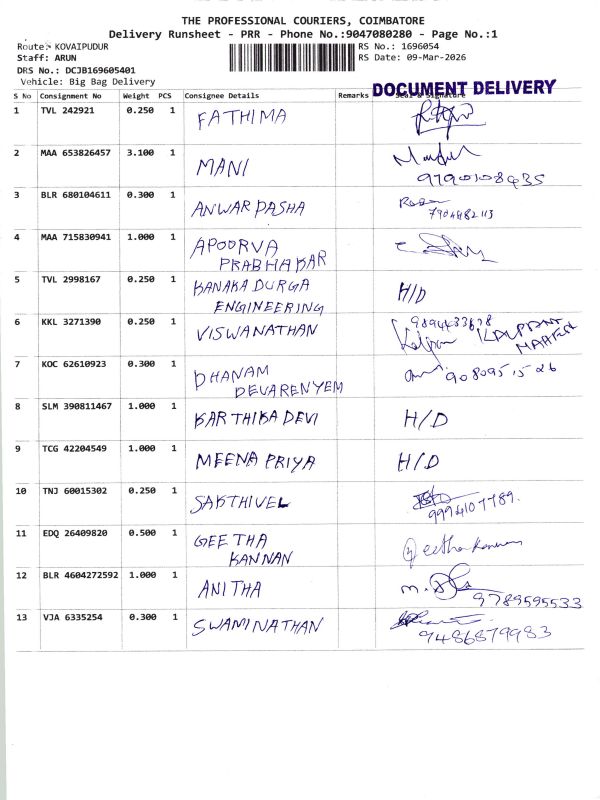 THE PROFESSIONAL COURIERS, COIMBATORE
Delivery Runsheet - PRR - Phone No.:9047080280 - Page No.:1
Route:- KOVAIPUDUR
Staff: ARUN
DRS No.: DCJB169605401
Vehicle: Big Bag Delivery
RS No.: 1696054
RS Date: 09-Mar-2026
DOCUMENT DELIVERY
S No Consignment No Weight PCS Consignee Details Remarks Seal & Signature
1 TVL 242921 0.250 1 FATHIMA
2 MAA 653826457 3.100 1 MANI
9790108435
3 BLR 680104611 0.300 1 ANWAR PASHA
7904482113
4 MAA 715830941 1.000 1 APOORVA
PRABHAKAR
5 TVL 2998167 0.250 1 KANAKA DURGA H/D
ENGINEERING
6 KKL 3271390 0.250 1 VISWANATHAN 9894433678
7 KOC 62610923 0.300 1 DHANAM
DEVARENYEM
9080951526
8 SLM 390811467 1.000 1 KARTHIKA DEVI H/D
9 TCG 42204549 1.000 1 MEENA PRIYA H/D
10 TNJ 60015302 0.250 1 SAKTHIVEL
9994107789.
11 EDQ 26409820 0.500 1 GEETHA Geetha Kannan
KANNAN
12 BLR 4604272592 1.000 1 ANITHA
9789595533
13 VJA 6335254 0.300 1 SWAMINATHAN
9486879983